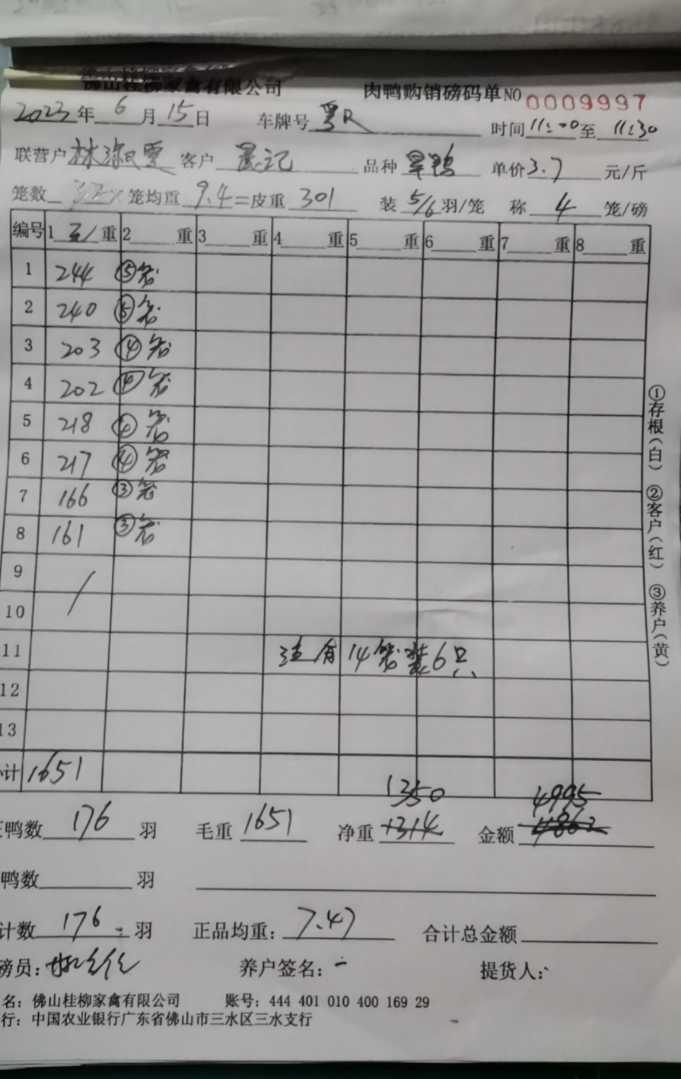 佛山桂柳家禽有限公司 肉鸭购销磅码单 NO 0009997
2023年 6月 15日 车牌号 粤R 时间 11:00至 11:30
联营户 林 客户 晨记 品种 旱鸭 单价 3.7 元/斤
笼数 笼均重 9.4=皮重 301 装 5/6 羽/笼 称 4 笼/磅
编号 1 重 2 重 3 重 4 重 5 重 6 重 7 重 8 重
1 244 ⑤笼
2 240 ⑤笼
3 203 ④笼
4 202 ④笼
5 218 ④笼
6 217 ④笼
7 166 ③笼
8 161 ③笼
9
10
11 注有14笼装6只
12
13
计 1651
鸭数 176 羽 毛重 1651 净重 1350 金额 4995
鸭数 羽
计数 176 羽 正品均重: 7.47 合计总金额
磅员: 养户签名: 提货人:
名: 佛山桂柳家禽有限公司 账号: 444 401 010 400 169 29
行: 中国农业银行广东省佛山市三水区三水支行
①存根(白) ②客户(红) ③养户(黄)